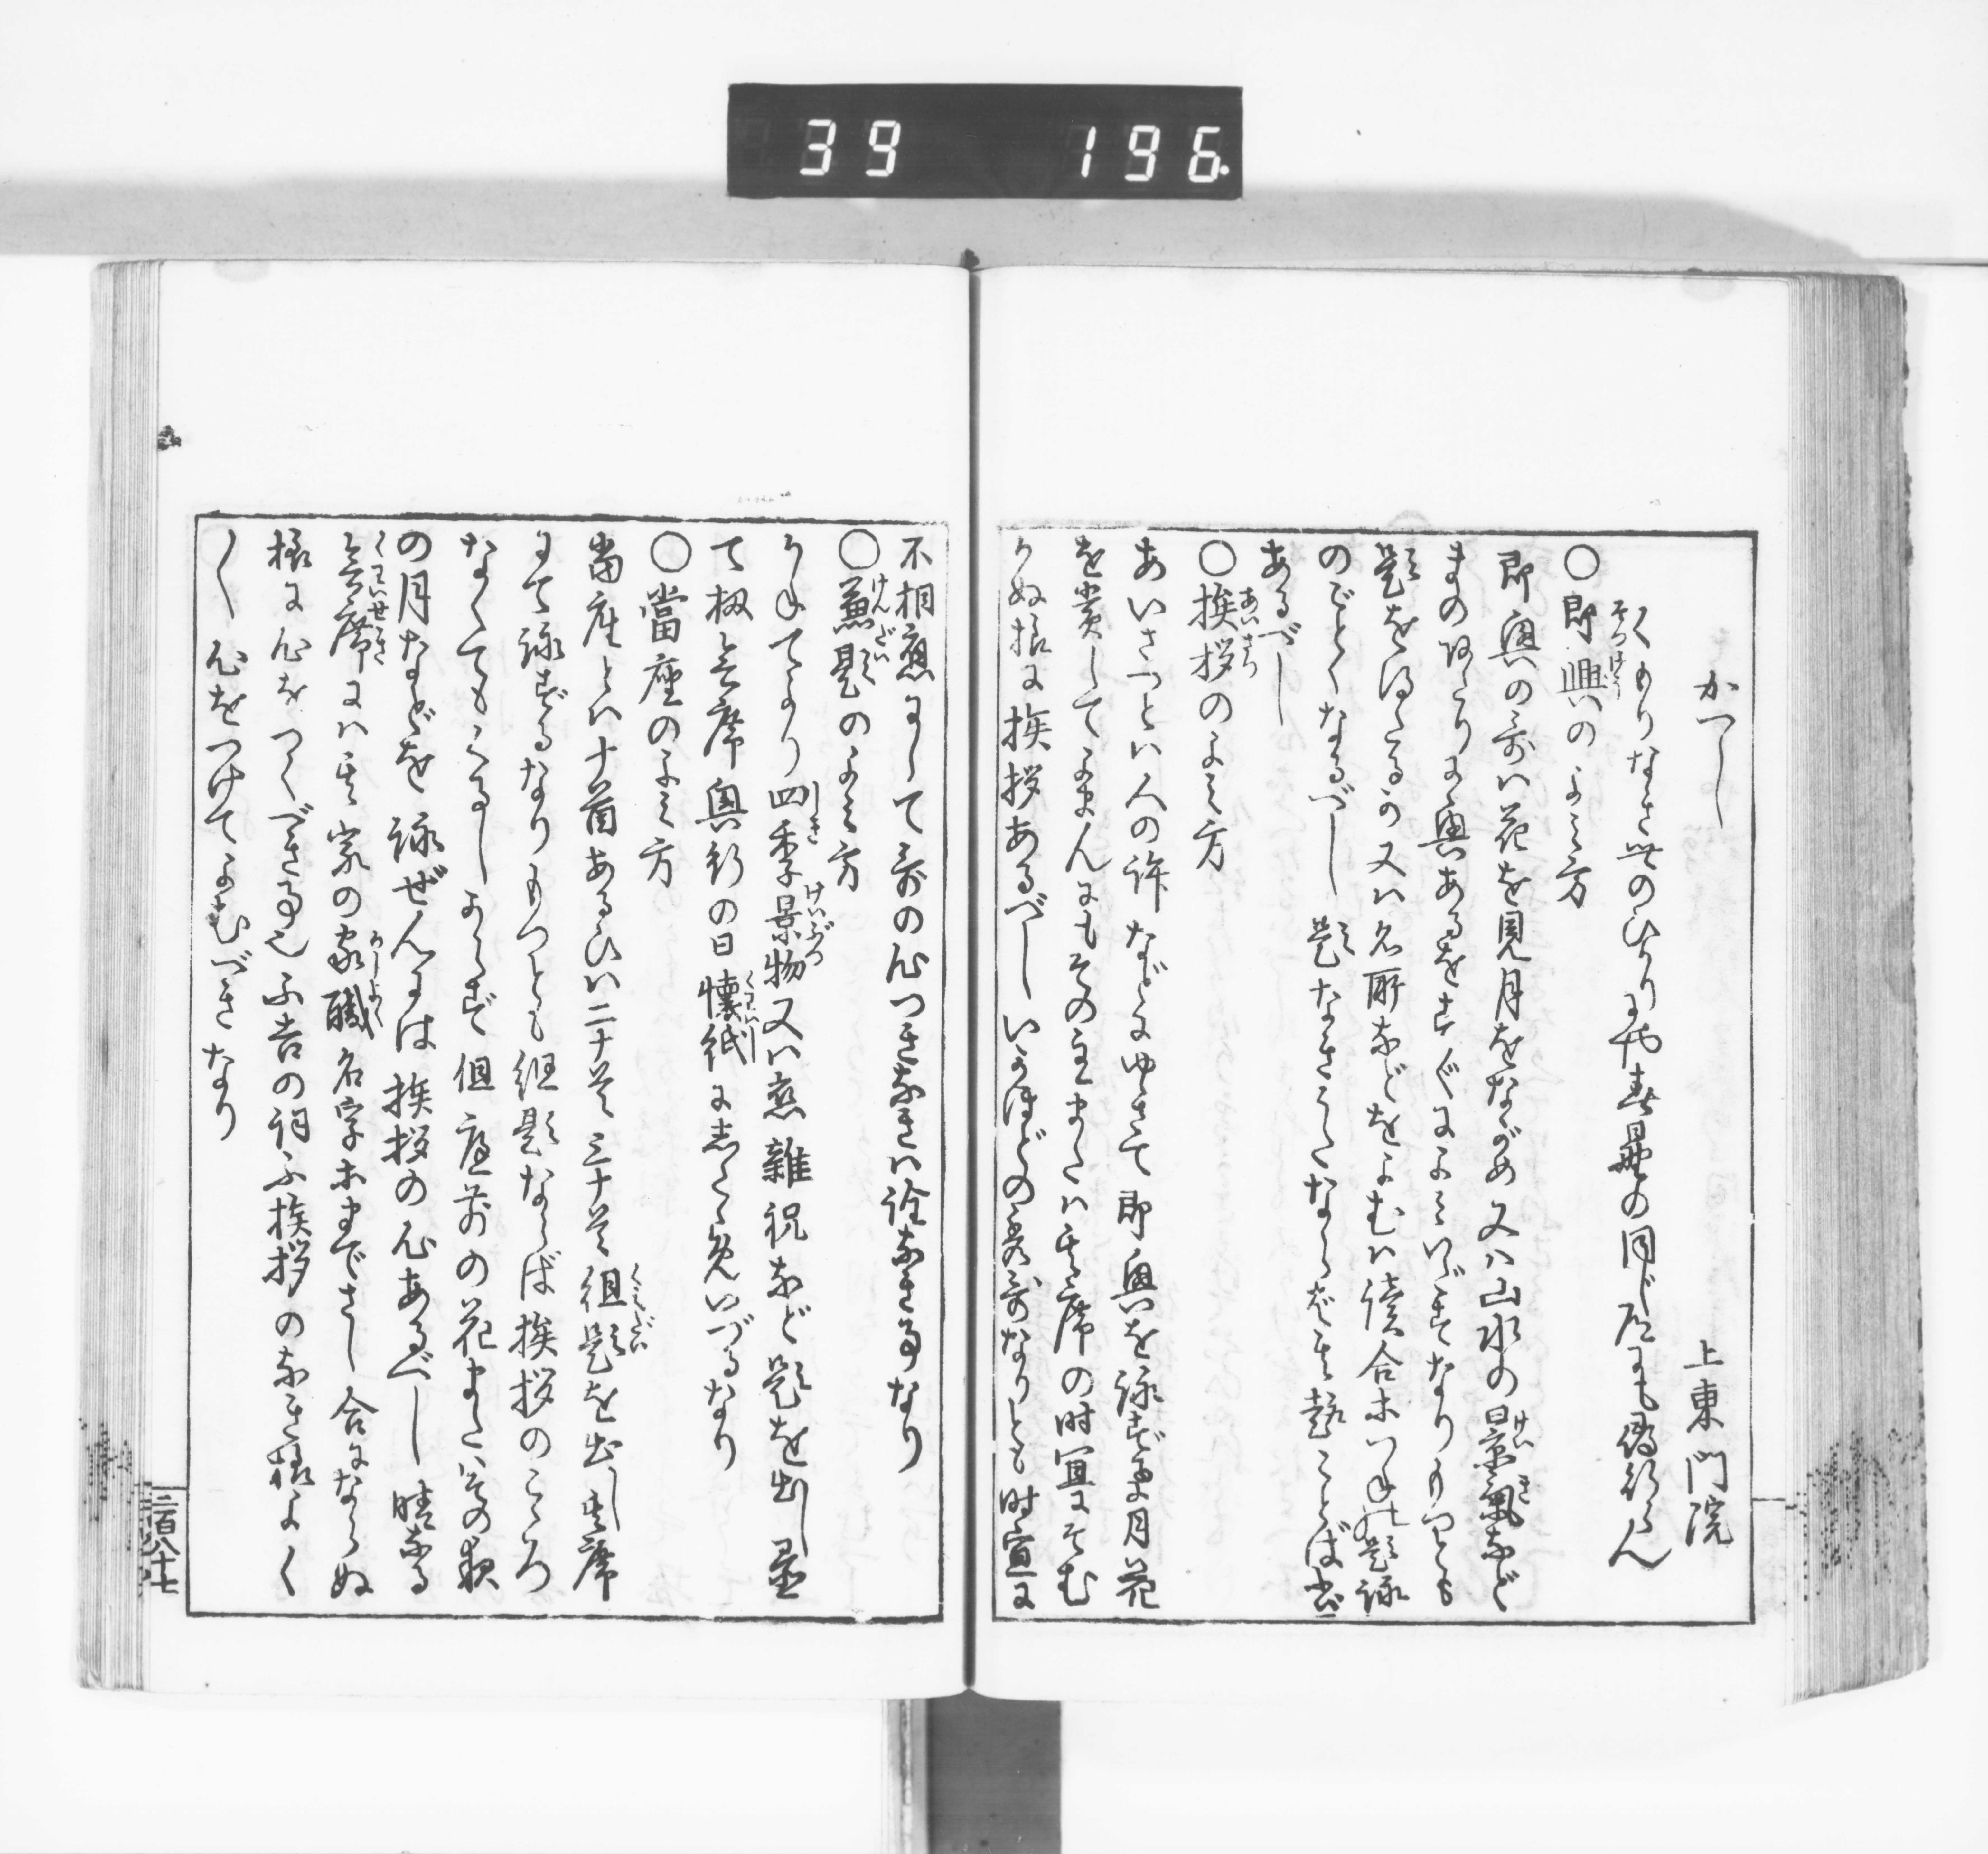 39 196
かへし 上東門院
くもりなき世のひかりにや春日野の同じ道にも尋行らん
○即興のよみ方
即興の哥ハ花を見月をながめ又ハ山水の景氣など
まのあたりに興あるをすぐによみいだすなりもつとも
題をほるか又ハ名所などをよむハ續合ホつねの題詠
のごとくなるべし題なきうたならば其趣ことば書
あるべし
○挨拶のよみ方
あいさつとハ人の許などにゆきて即興を詠ず月花
を賞してよまんにもその主または其席の时宜にそむ
かぬ様に挨拶あるべしいかほどの秀哥なりとも时宜に
不相應にして哥の心つきなきハ詮なき事なり
○兼題のよみ方
かねてより四季景物又ハ恋雜祝など題を出し置
て扨會席興行の日懐紙にしたゝめいづるなり
○當座のよみ方
當座とハ十首あるひハ二十首三十首組題を出し其席
にて詠ずるなりもつとも組題ならば挨拶のこゝろ
なくてもくるしからず但庭前の花またハその夜
の月などを詠ぜんには挨拶の心あるべし晴なる
會席にハ其家の家職名字ホまでさし合にならぬ
様に心をつくべき事也不吉の詞不挨拶のなき様よく
〳〵心をつけてよむべきなり
二百八十七